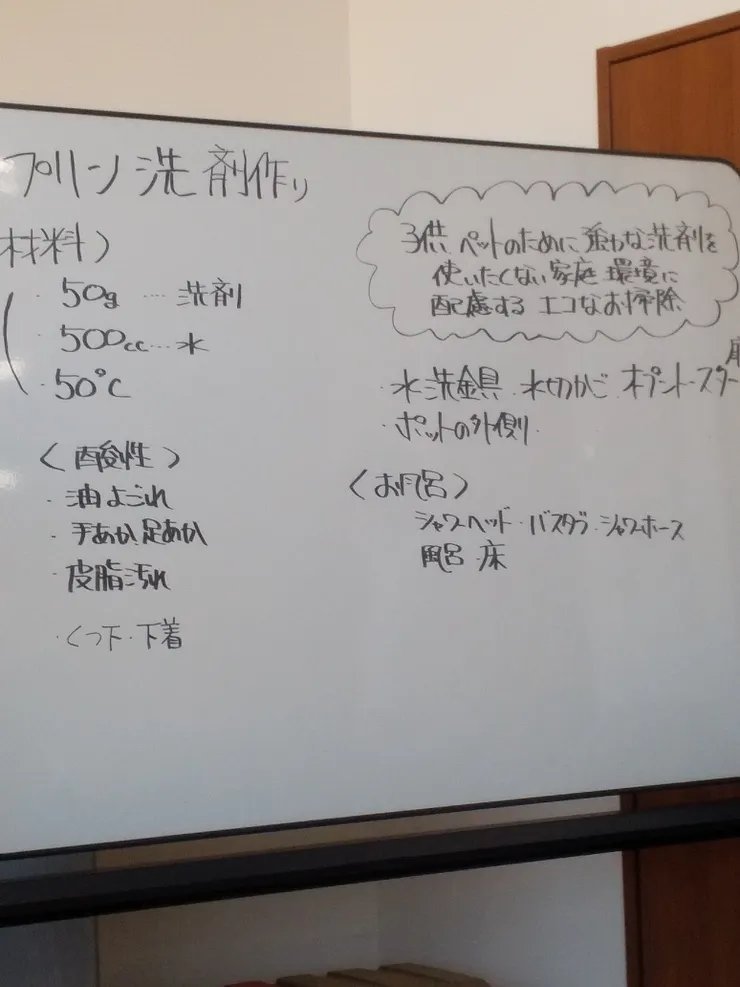 プリン洗剤作り
材料)
・50g … 洗剤
・500cc … 水
・50℃
〈酸性〉
・油よごれ
・手あか、足あか
・皮脂汚れ
・くつ下・下着
子供 ペットのために 強力な洗剤を
使いたくない家庭 環境に
配慮する エコなお掃除
・水洗金具 水切かご
・ポットの外側
〈お風呂〉
シャワーヘッド・バスタブ・シャワーホース
風呂 床